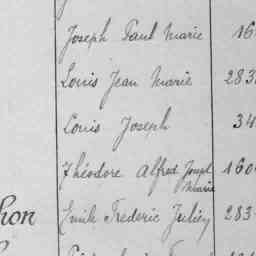 Joseph Paul Marie 16
Louis Jean Marie 283
Louis Joseph 34
Théodore Alfred Joseph 160
Marie
hon Emile Frederic Julien 283